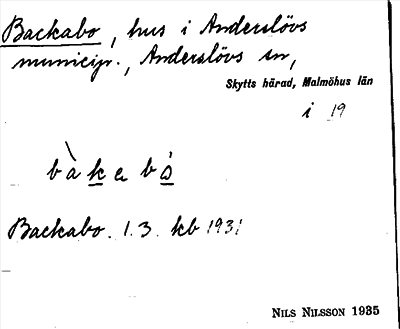 Backabo, hus i Anderslövs
municip., Anderslövs sn,
Skytts härad, Malmöhus län
i 19
bàkebó
Backabo. 1.3. kb 1931
NILS NILSSON 1935